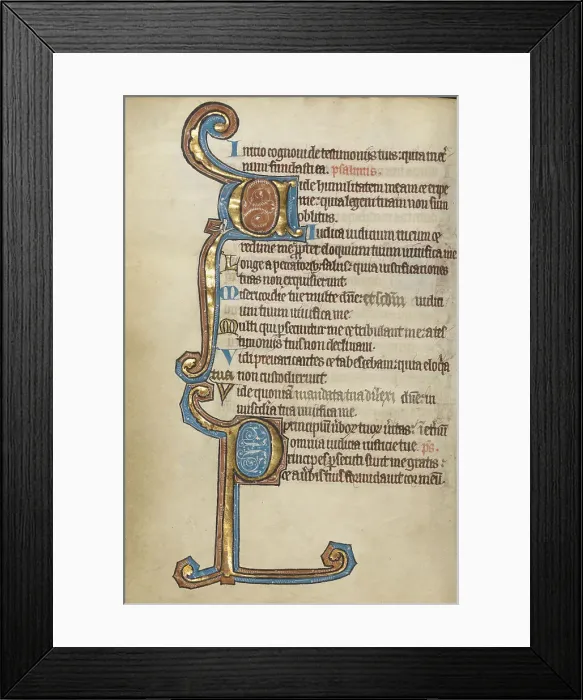 Initio cognoui de testimoniis tuis: quia in et
nnum fundasti ea. psalmus.
Vide humilitatem meam et eripe
me: quia legem tuam non sum
oblitus.
Iudica iudicium meum et
redime me: ꝓpter eloquium tuum uiuifica me
Longe a peccatoribꝫ salus: quia iustificationes
tuas non exquisierunt.
Misericordie tue multe dñe: et scdm iudici
um tuum uiuifica me.
Multi qui ꝑsecuntur me et tribulant me: a tes
timoniis tuis non declinaui.
Vidi preuaricantes et tabescebam: quia eloqa
tua non custodierunt.
Vide quoniã mandata tua dilexi dñe: in
miscdia tua uiuifica me.
Principiũ ũbor tuor ũitas: i et̃nũ
omnia iudicia iusticie tue. ps.
Principes ꝑsecuti sunt me gratis:
et a ũbis tuis formidauit cor meũ.